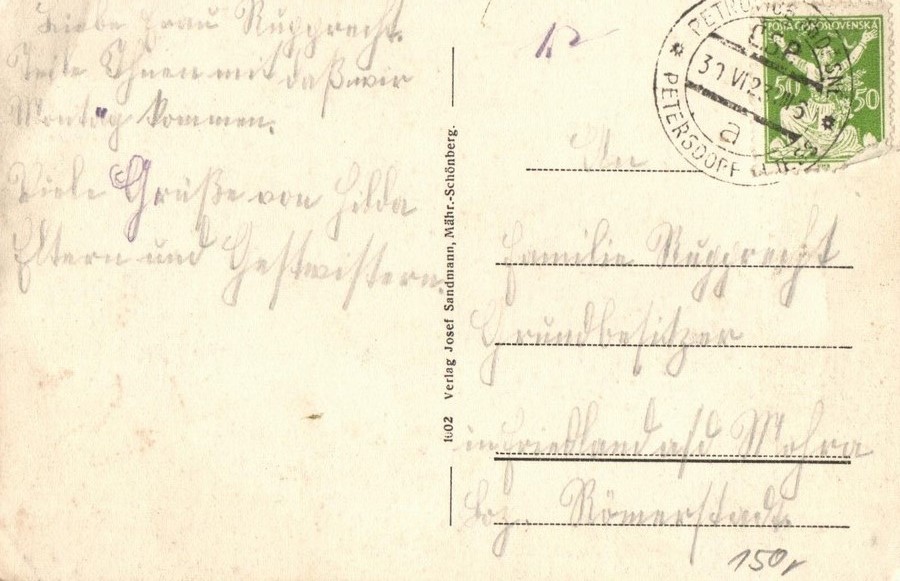 Liebe Frau Rupprecht.
Teile Ihnen mit daß wir
Montag kommen.
Viele Grüße von Hilda
Eltern und Gestwistern.
1602 Verlag Josef Sandmann, Mähr.-Schönberg.
POSTA ČESKOSLOVENSKÁ
50 50
ČSP
30.VI.2
a
PETERSDORF
An
Familie Rupprecht
Grundbesitzer
in Friedland a/d Mohra
Bez. Römerstadt.
150,